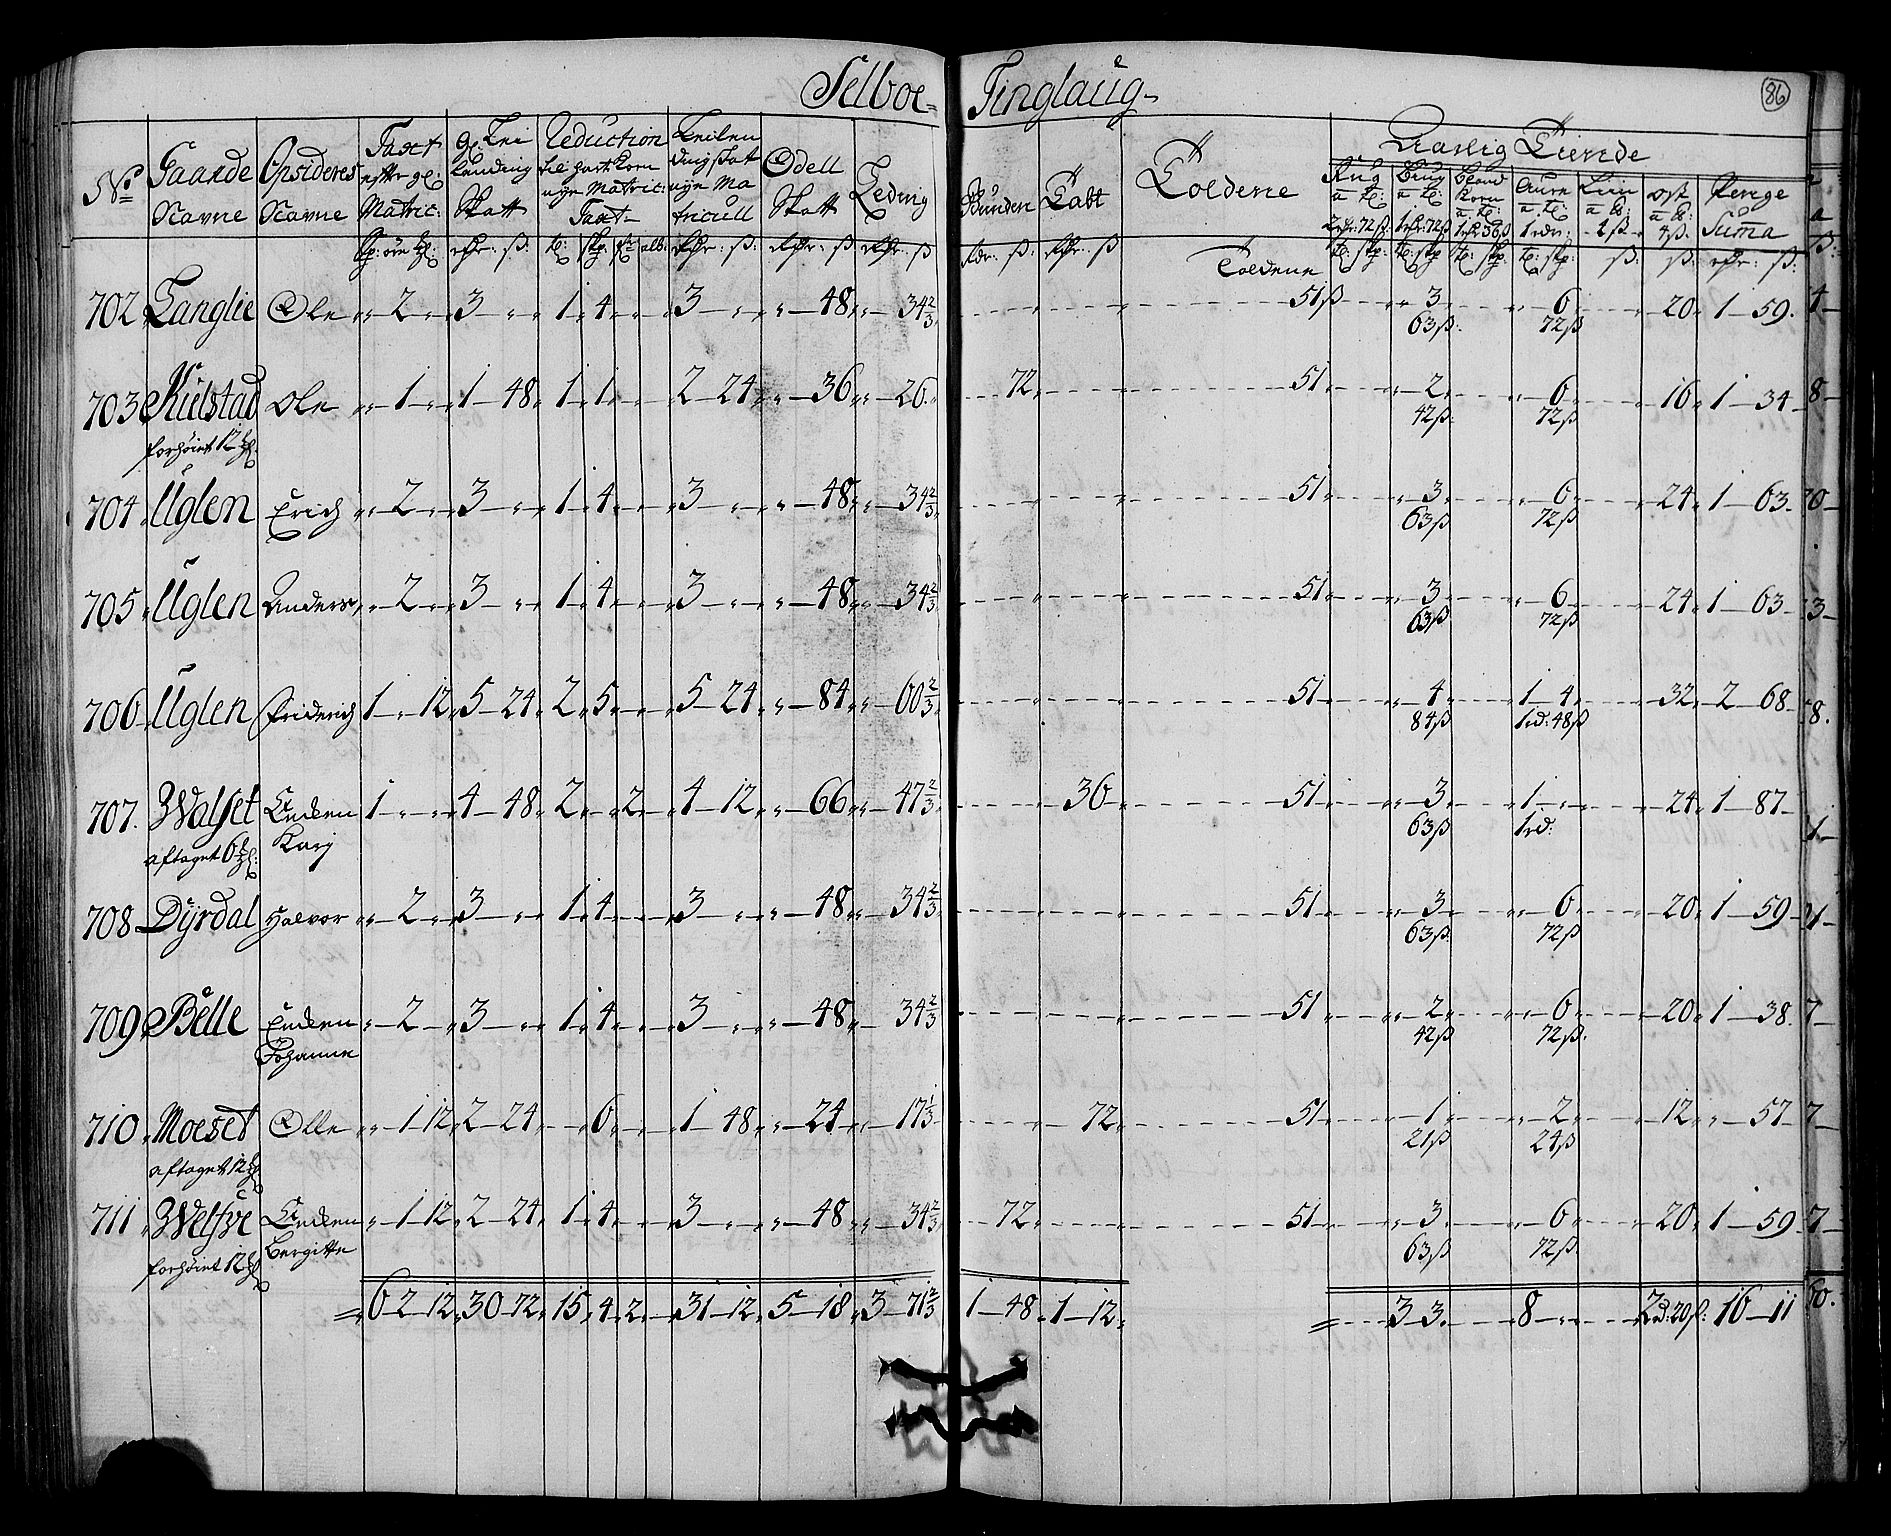 Selboe= Tinglaug
86
No Gaarde Navne Opsideres Navne Taxt efter gl: Matric: gl: Lei Landing Skatt Reduction til hartkorn nye Matric: Taxt Leilendings skat nye Matricull Odell Skatt Leding Bunden Tabt Toldene Aarlig Tiende
Rug Bÿug Bland Korn Aure Lin ost Penge Suma
Toldene
702 Langlie Ole 2 3 1 4 3 48 34 2/3 51 ß 3 6 20 1 59
63 ß 72 ß
703 Kulstad Ole 1 1 48 1 1 2 24 36 26 72 51 2 6 16 1 34
forhöiet 12 42 ß 72 ß
704 Uglen Erich 2 3 1 4 3 48 34 2/3 51 3 6 24 1 63
63 ß 72 ß
705 Uglen Anders 2 3 1 4 3 48 34 2/3 51 3 6 24 1 63
63 ß 72 ß
706 Uglen Friderich 1 12 5 24 2 5 5 24 84 60 2/3 51 4 1 4 32 2 68
84 ß 1 rd: 48 ß
707. Walset Enken 1 4 48 2 2 4 12 66 47 2/3 36 51 3 1 24 1 87
aftaget 6 Kari 63 ß 1 rd:
708 Dÿrdal Halvor 2 3 1 4 3 48 34 2/3 51 3 6 20 1 59
63 ß 72 ß
709 Belle Enken 2 3 1 4 3 48 34 2/3 51 2 6 20 1 38
Johanne 42 ß 72 ß
710 Moeset Olle 1 12 2 24 6 1 48 24 17 1/3 72 51 1 2 12 57
aftaget 12 21 ß 24 ß
711 Welsve Enken 1 12 2 24 1 4 3 48 34 2/3 72 51 3 6 20 1 59
forhöiet 12 Bergitte 63 ß 72 ß
6 2 12 30 72 15 4 2 31 12 5 18 3 71 2/3 1 48 1 12 3 3 8 2 d: 20 ß: 16 11